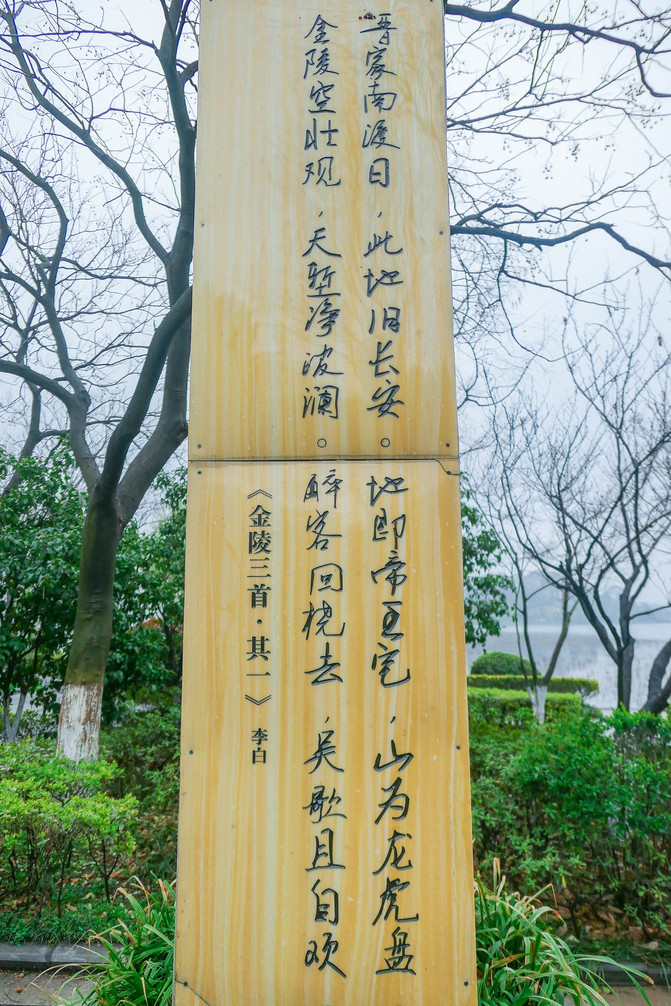 晋家南渡日，此地旧长安。地即帝王宅，山为龙虎盘
金陵空壮观，天堑净波澜。醉客回桡去，吴歌且自欢
《金陵三首·其一》李白